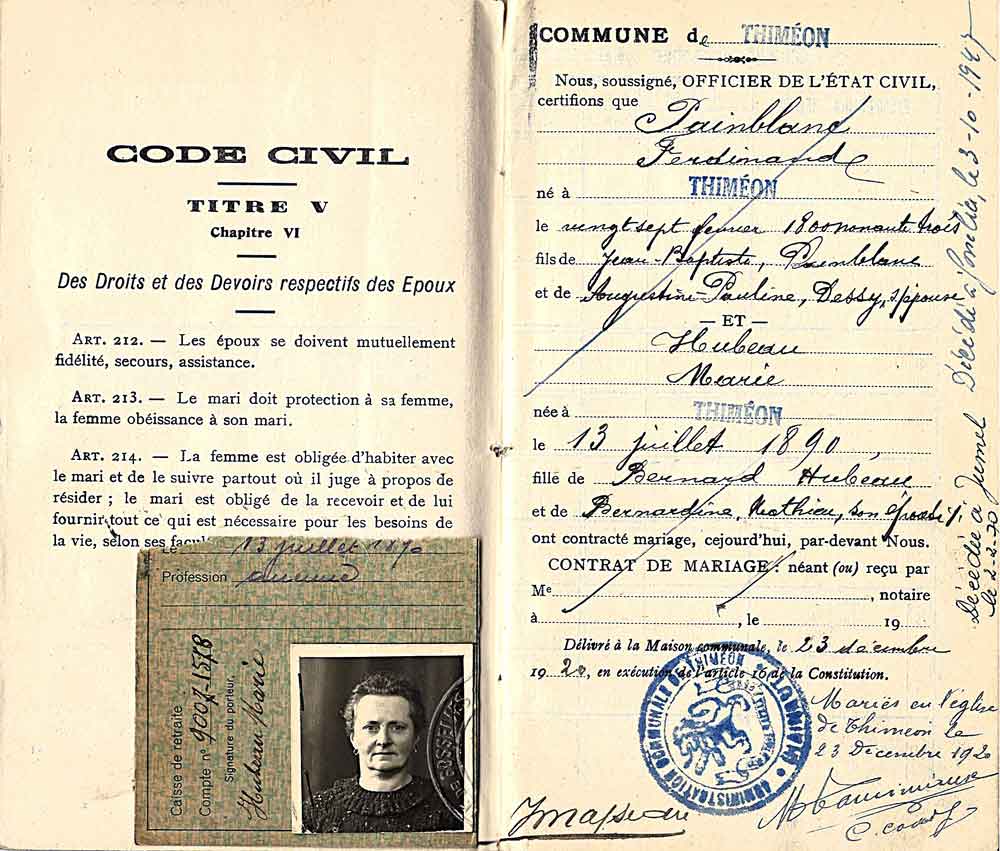 CODE CIVIL
TITRE V
Chapitre VI
Des Droits et des Devoirs respectifs des Epoux
ART. 212. — Les époux se doivent mutuellement
fidélité, secours, assistance.
ART. 213. — Le mari doit protection à sa femme,
la femme obéissance à son mari.
ART. 214. — La femme est obligée d'habiter avec
le mari et de le suivre partout où il juge à propos de
résider ; le mari est obligé de la recevoir et de lui
fournir tout ce qui est nécessaire pour les besoins de
la vie, selon ses facul
Le 13 juillet 1890
Profession
Caisse de retraite
Compte n° 9007 1578
Signature du porteur,
Hubeau Marie
COMMUNE de THIMÉON
Nous, soussigné, OFFICIER DE L'ÉTAT CIVIL,
certifions que Painblanc
Ferdinand
né à THIMÉON
le vingt sept février 1800 nonante trois
fils de Jean-Baptiste, Painblanc
et de Augustine Pauline, Dessy, s/épouse
— ET —
Hubeau
Marie
née à THIMÉON
le 13 juillet 1890,
fille de Bernard Hubeau
et de Bernardine, Mathieu, son épouse
ont contracté mariage, cejourd'hui, par-devant Nous.
CONTRAT DE MARIAGE : néant (ou) reçu par
Me , notaire
à , le 19
Délivré à la Maison communale, le 23 décembre
1920, en exécution de l'article 16 de la Constitution.
ADMINISTRATION COMMUNALE DE THIMÉON
HAINAUT
Mariés en l'église
de Thiméon le
23 Décembre 1920
Décédé à , le 3-10-1947
Décédée à Jumet
le 2-2-70